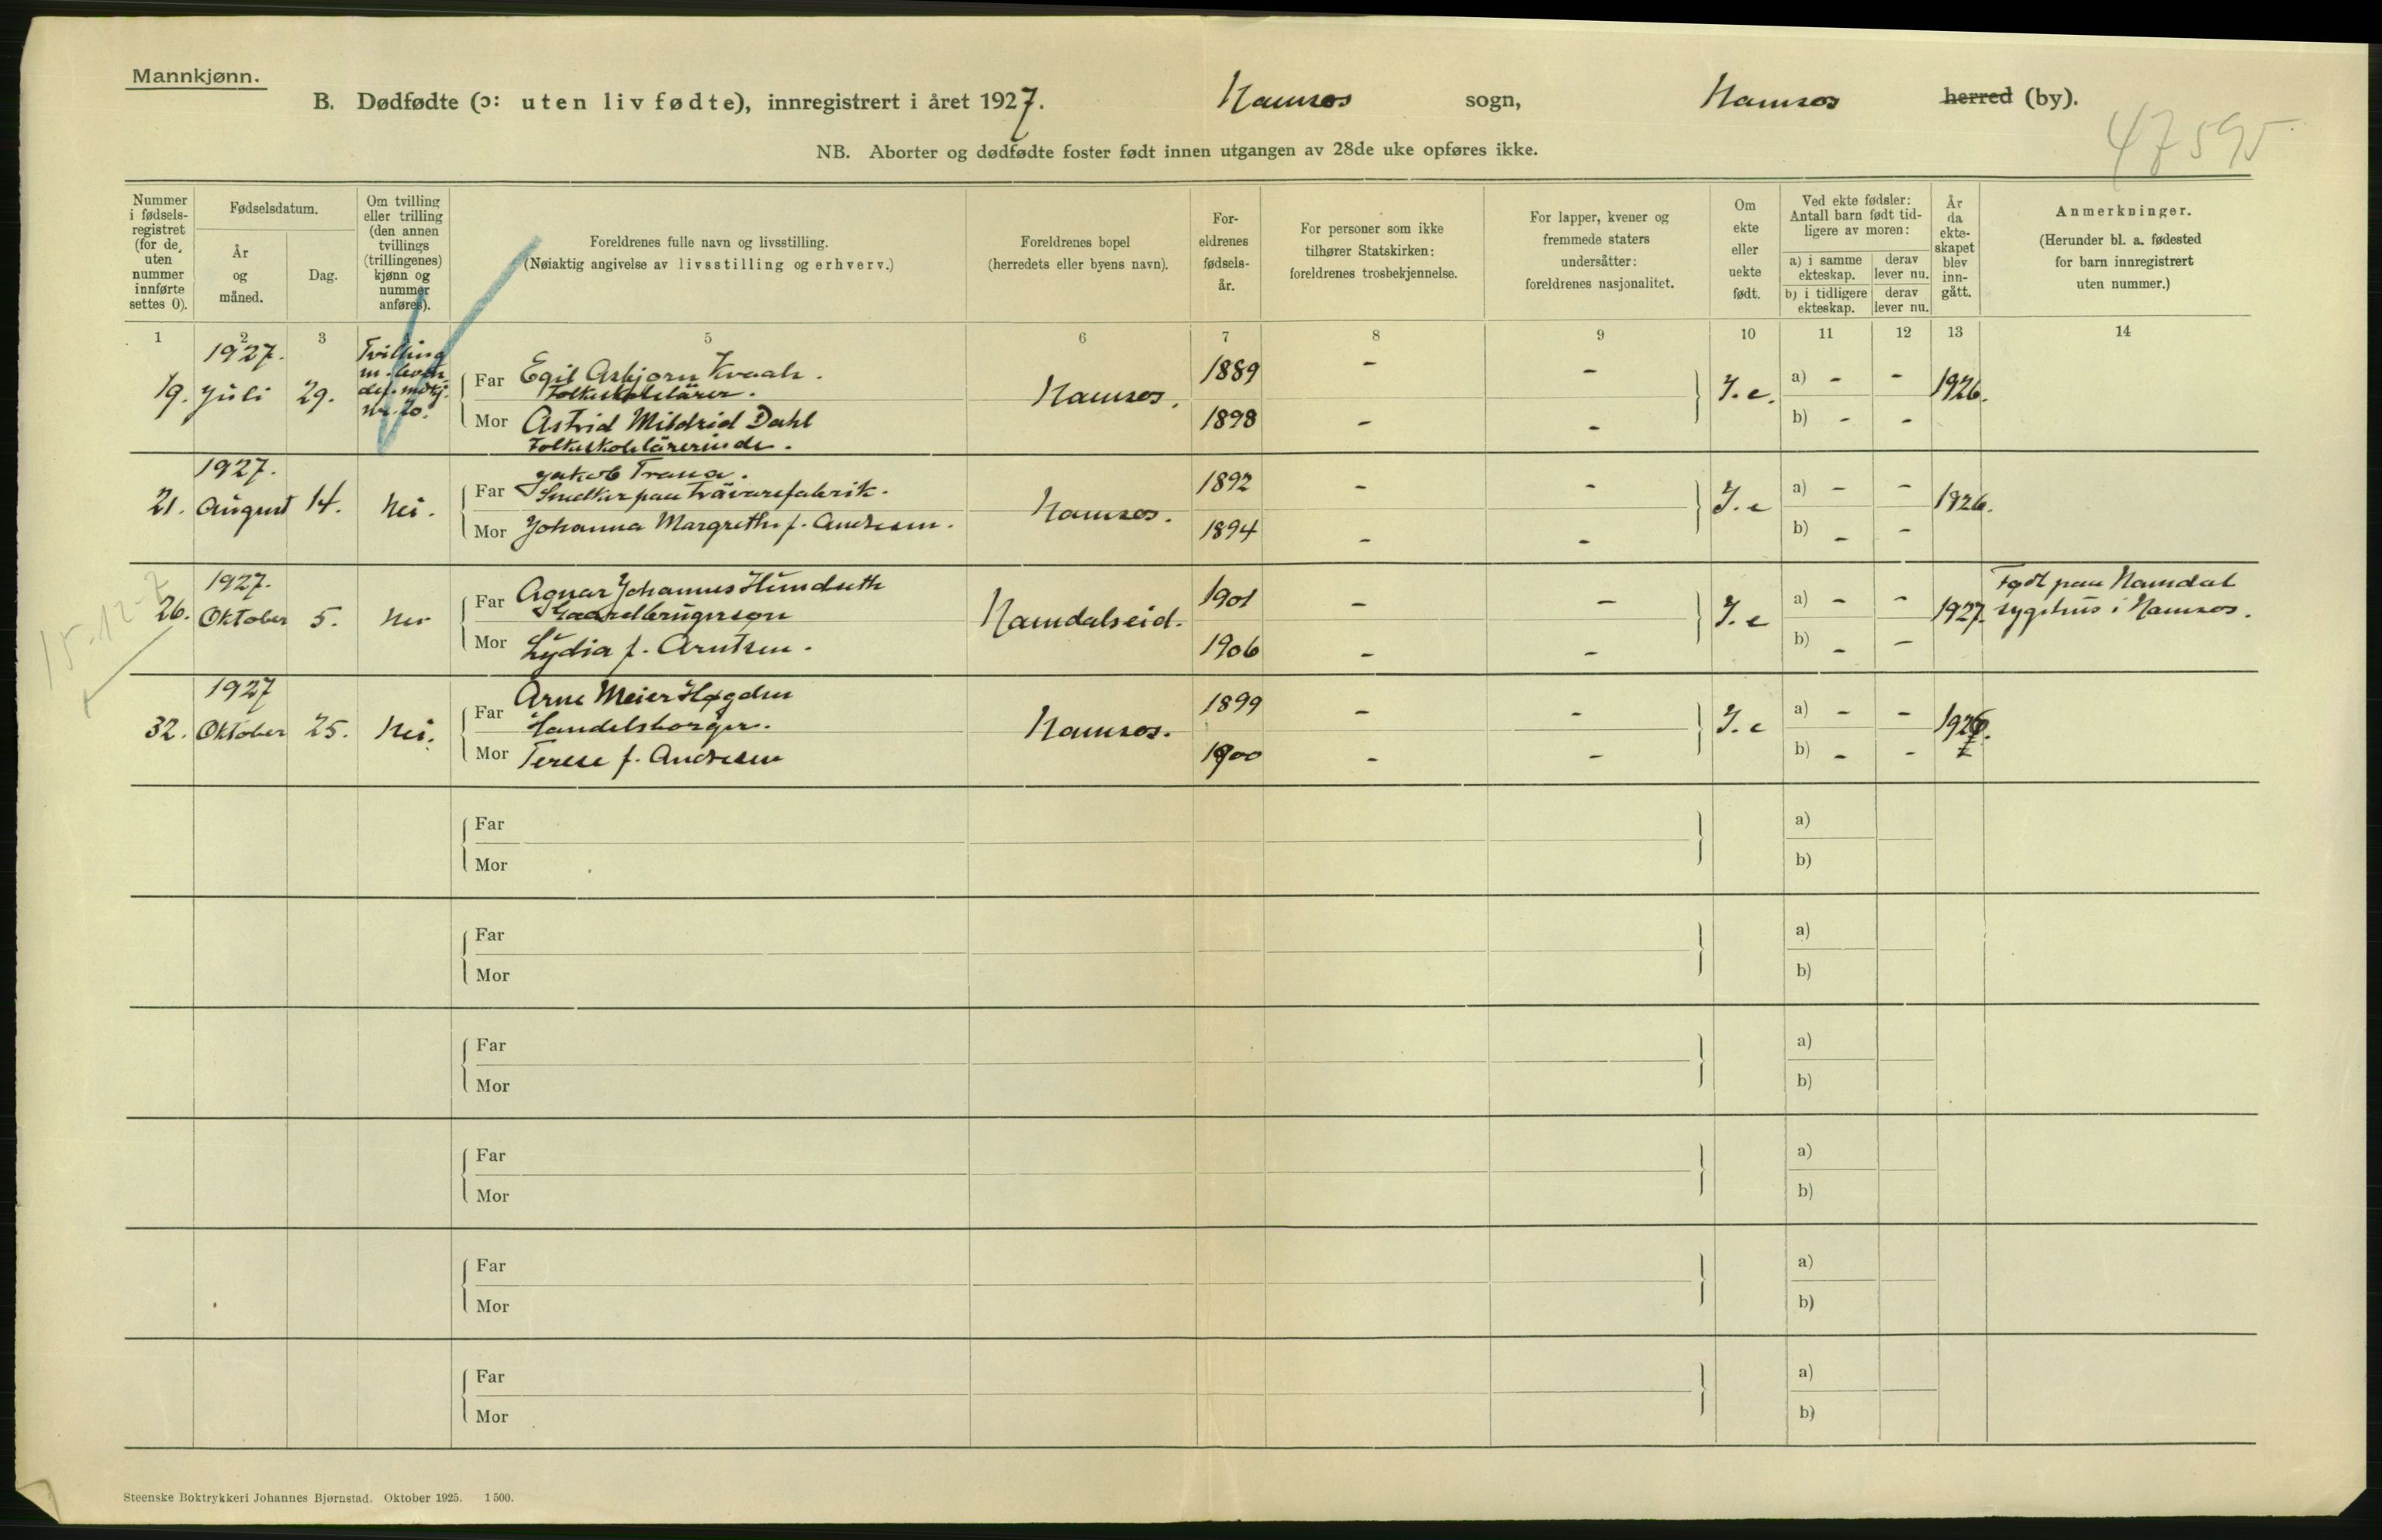 Mannkjønn.
B. Dødfødte (ɔ: uten liv fødte), innregistrert i året 1927. Namsos sogn, Namsos herred (by).
47595
NB. Aborter og dødfødte foster født innen utgangen av 28de uke opføres ikke.
Nummer i fødsels-registret (for de uten nummer innførte settes 0).
Fødselsdatum.
År og måned.
Dag.
Om tvilling eller trilling (den annen tvillings (trillingenes) kjønn og nummer anføres).
Foreldrenes fulle navn og livsstilling.
(Nøiaktig angivelse av livsstilling og erhverv.)
Foreldrenes bopel
(herredets eller byens navn).
For-eldrenes fødsels-år.
For personer som ikke tilhører Statskirken: foreldrenes trosbekjennelse.
For lapper, kvener og fremmede staters undersåtter: foreldrenes nasjonalitet.
Om ekte eller uekte født.
Ved ekte fødsler: Antall barn født tid-ligere av moren:
a) i samme ekteskap.
derav lever nu.
b) i tidligere ekteskap.
derav lever nu.
År da ekte-skapet blev inn-gått.
Anmerkninger.
(Herunder bl. a. fødested for barn innregistrert uten nummer.)
1 2 3 5 6 7 8 9 10 11 12 13 14
1927.
Tvilling
19. Juli 29.
nr. 20.
Far Egil Asbjørn Kvaah.
Folkeskolelärer.
Mor Astrid Mildrid Dahl
Folkeskolelärerinde.
Namsos.
1889 - -
1898 - -
I. e.
a) - -
b) - -
1926.
1927.
21. August 14. Nei.
Far Jakob Trana.
Snelker paa trävarefabrik.
Mor Johanna Margrethe f. Andresen.
Namsos.
1892 - -
1894 - -
I. e
a) - -
b) - -
1926.
15-12-7
1927.
26. Oktober 5. Nei
Far Agnar Johannes Hundseth
Gaardbrugersøn
Mor Lydia f. Arntsen.
Namdalseid.
1901 - -
1906 - -
I. e
a) - -
b) - -
1927.
Født paa Namdal
sygehus i Namsos.
1927
32. Oktober 25. Nei.
Far Arne Meier Høgden
Handelsborger.
Mor Terese f. Andresen
Namsos.
1899 - -
1900 - -
I. e
a) - -
b) - -
Far
Mor
a)
b)
Far
Mor
a)
b)
Far
Mor
a)
b)
Far
Mor
a)
b)
Far
Mor
a)
b)
Far
Mor
a)
b)
Steenske Boktrykkeri Johannes Bjørnstad. Oktober 1925. 1 500.